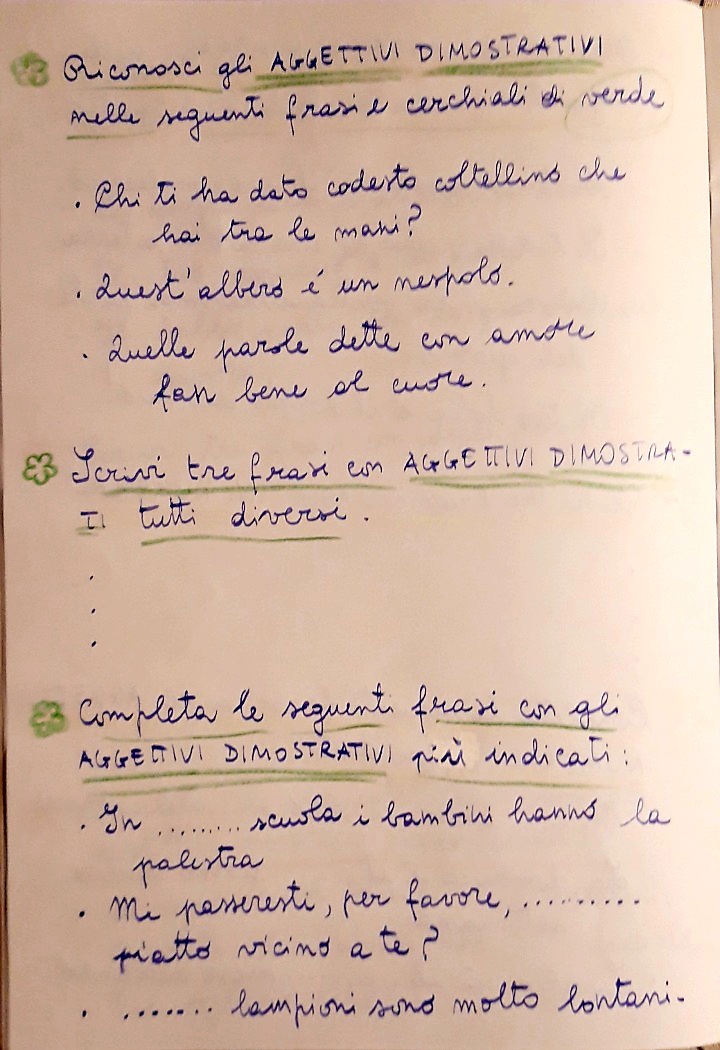 Riconosci gli AGGETTIVI DIMOSTRATIVI
nelle seguenti frasi e cerchiali di verde
. Chi ti ha dato codesto coltellino che
hai tra le mani?
. Quest'albero é un nespolo.
. Quelle parole dette con amore
fan bene al cuore.
Scrivi tre frasi con AGGETTIVI DIMOSTRA-
TI tutti diversi.
.
.
.
Completa le seguenti frasi con gli
AGGETTIVI DIMOSTRATIVI più indicati:
. In ......... scuola i bambini hanno la
palestra
. Mi passeresti, per favore, .........
piatto vicino a te?
. ....... lampioni sono molto lontani.